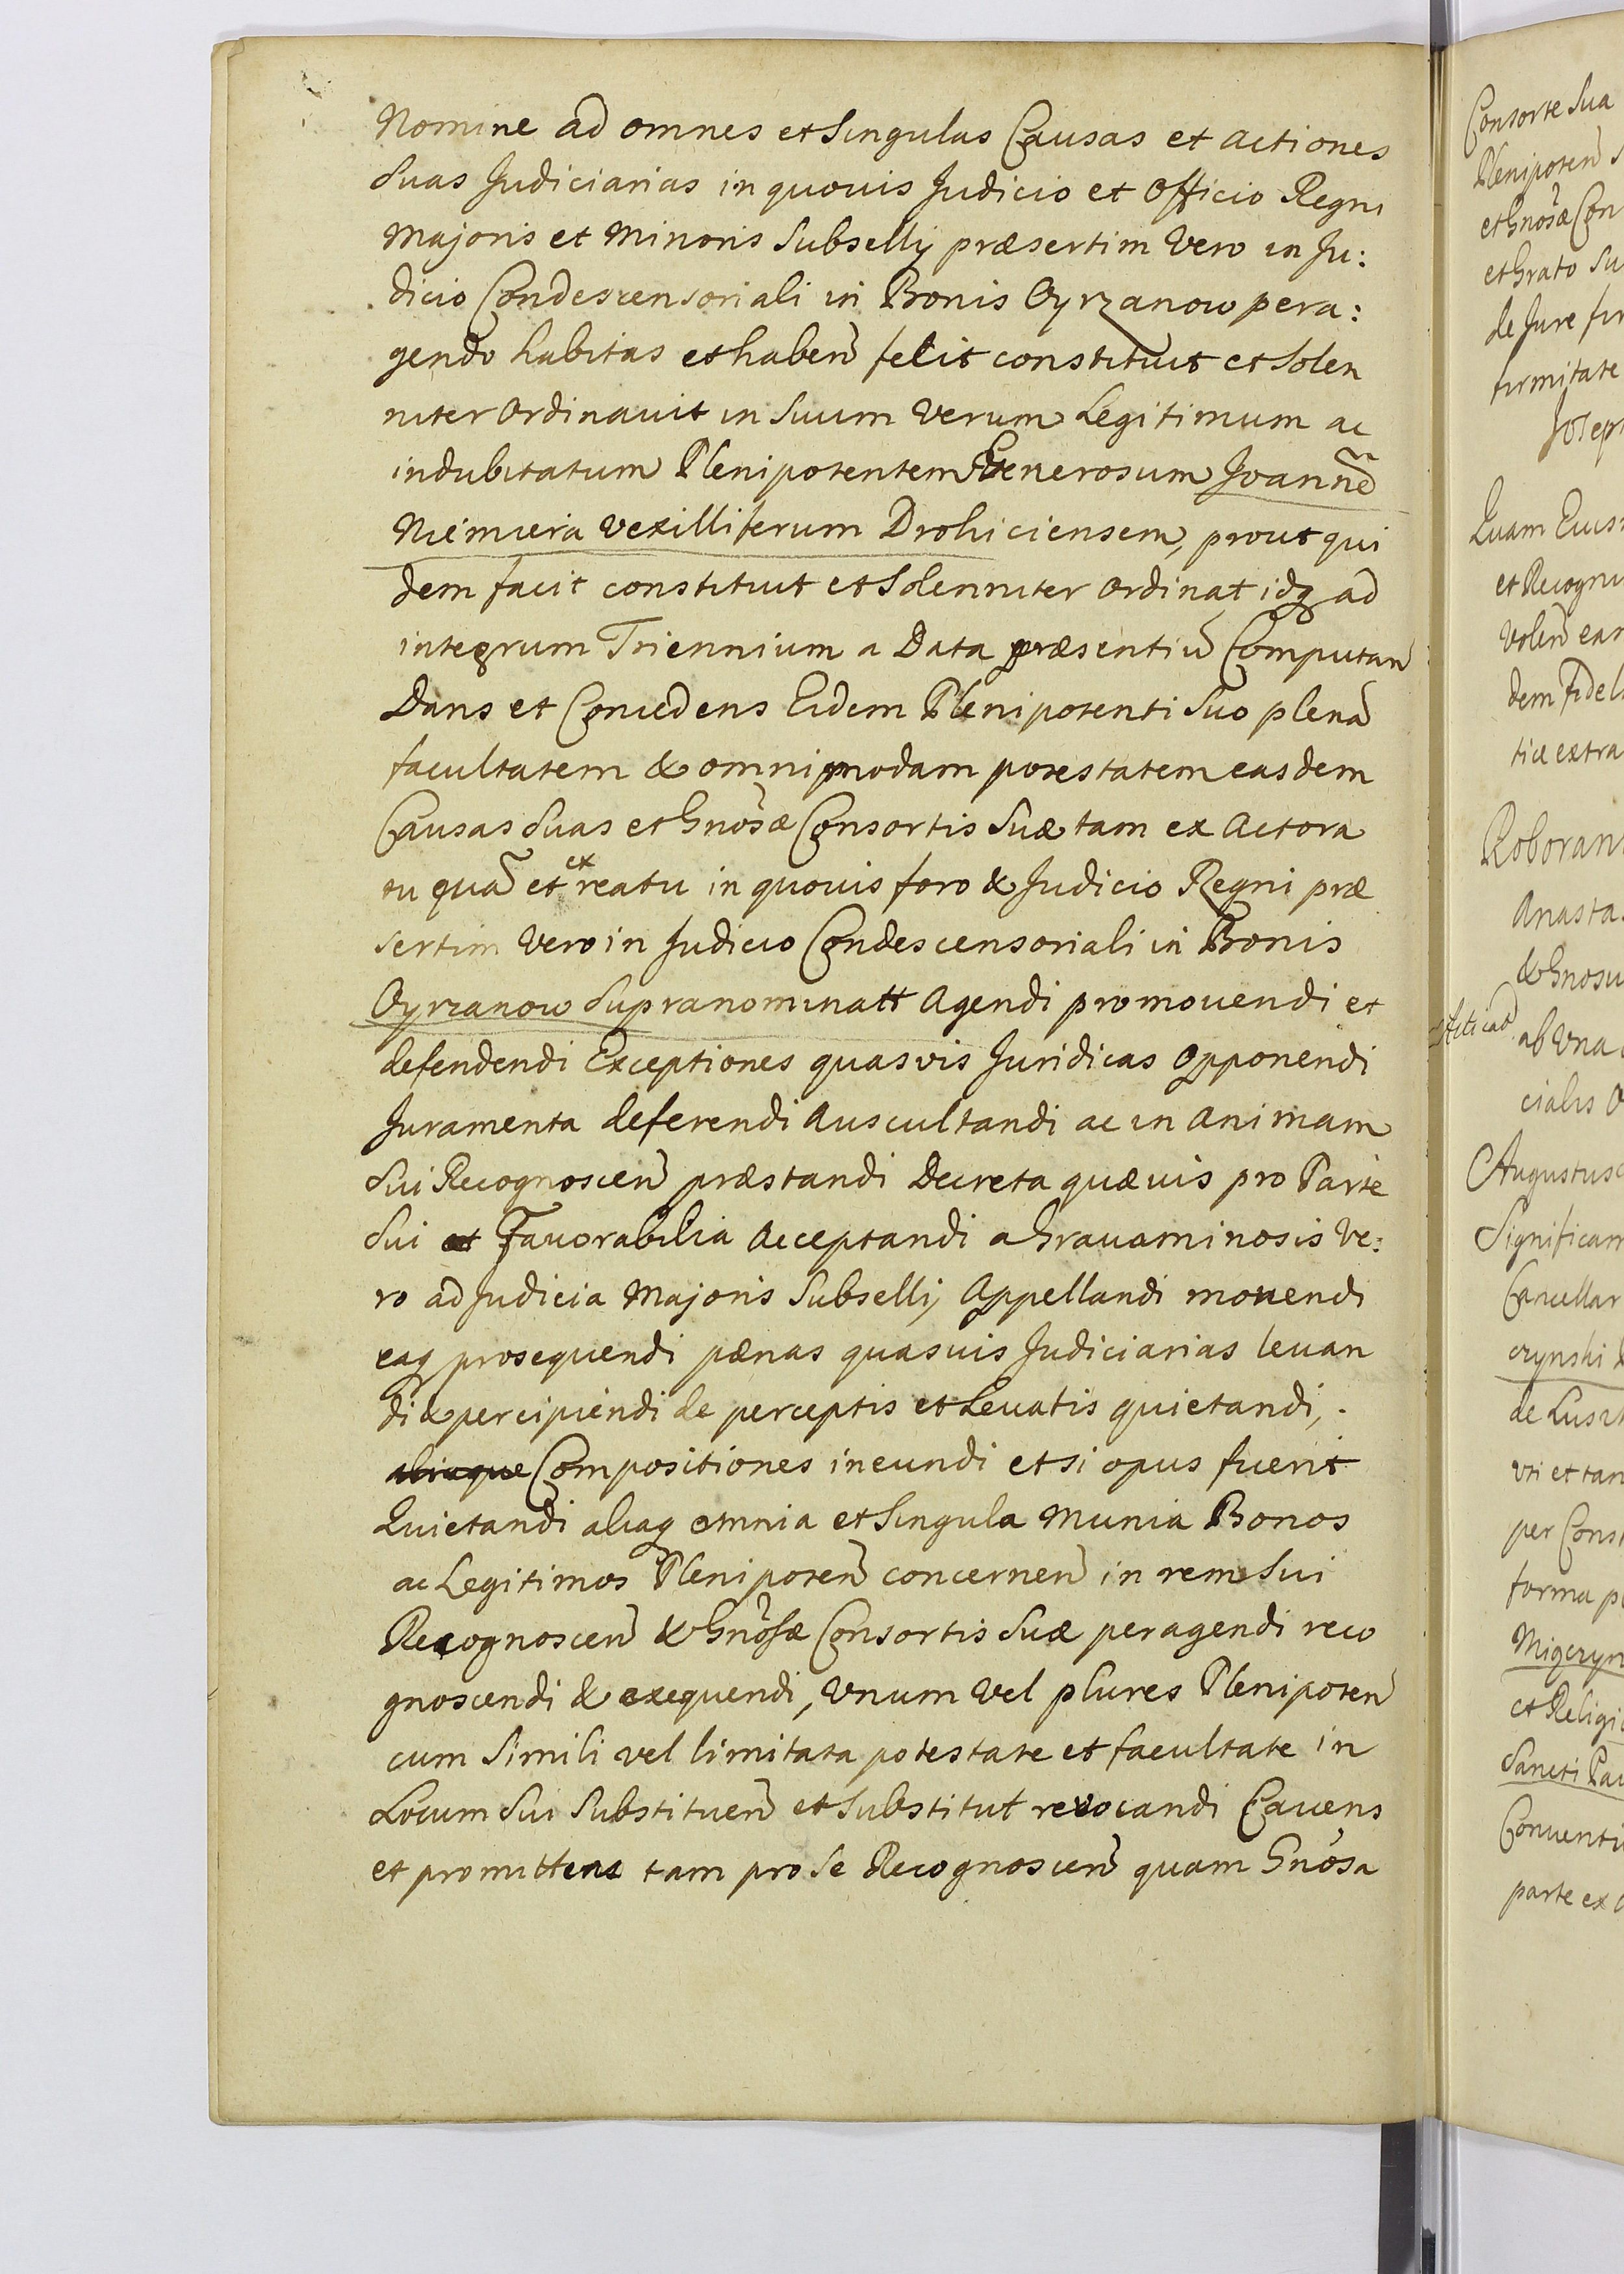 Nomine ad omnes et Singulas Causas et actiones
Suas Judiciarias in quovis Judicio et Officio Regni
Majoris et Minoris Subsellÿ præsertim Vero in Ju:
dicio Condescensoriali in Bonis Oyrzanow pera:
gendo habitas et haben̄ fecit constituit et Solen
niter Ordinavit in Suum Verum Legitimum ac
indubitatum Plenipotentem Generosum Joannē
Niemiera Vexilliferum Drohiciensem, prout qui
dem facit constituit et Solenniter Ordinat idq ad
integrum Triennium a Data præsentiū Computan̄
Dans et Concedens Eidem Plenipotenti Suo plenā
facultatem & omnimodam potestatem easdem
Causas Suas et Gnosæ Consortis Suæ tam ex Actora
tu quā et ex reatu in quovis foro & Judicio Regni præ
sertim Vero in Judicio Condescensoriali in Bonis
Oyrzanow Supranominatt Agendi promovendi et
defendendi Exceptiones quasvis Juridicas Opponendi
Juramenta deferendi Auscultandi ac in Animam
Sui Recognoscen̄ præstandi Decreta quævis pro Parte
Sui Favorabilia Acceptandi a Gravaminosis Ve:
ro ad Judicia Majoris Subsellij Appellandi movendi
eaq prosequendi pænas quasvis Judiciarias levan
di & percipiendi de perceptis et Levatis quietandi,
aliaque Compositiones ineundi et si opus fuerit
Quietandi aliaq omnia et Singula Munia Bonos
ac Legitimos Plenipoten̄ concernen̄ in rem Sui
Recognoscen̄ & Gnosæ Consortis Suæ peragendi reco
gnoscendi & exequendi, Vnum Vel plures Plenipoten̄
cum Simili vel limitata potestate et facultate in
Locum Sui Substituen̄ et Substitut revocandi Cavens
et promittens tam pro Se Recognoscen̄ quam Gnosa
Consorte Sua
Plenipoten̄ S
et Gnosæ Con
et Grato Su
de Jure fir
firmitate
Joseph
Quam Euis
et Recogni
Volen̄ ear
dem Fidel
tic extra
Roboran
Anasta
& Gnosu
ab Vna
cialis O
Augustus
Significam
Cancellar
czynski
de Lusz
vti et tan
per Const
forma p
Miączyn
et Religi
Sancti Pau
Conventu
parte ex